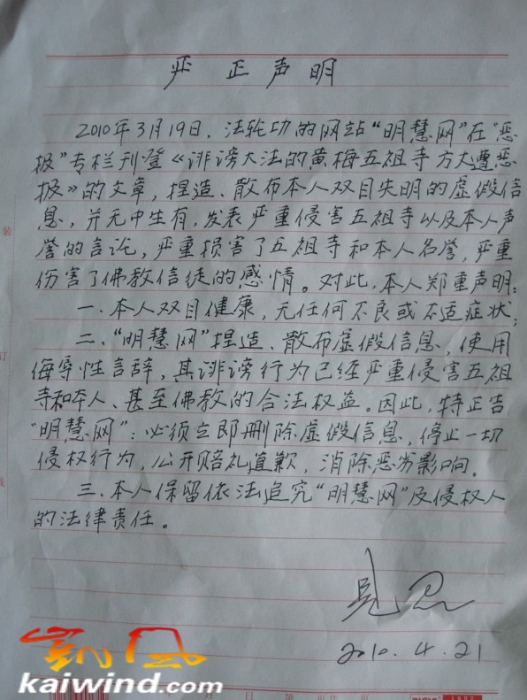 严正声明
2010年3月19日，法轮功的网站“明慧网”在“恶
报”专栏刊登《诽谤大法的黄梅五祖寺方丈遭恶
报》的文章，捏造、散布本人双目失明的虚假信
息，并无中生有，发表严重侵害五祖寺以及本人声
誉的言论，严重损害了五祖寺和本人名誉，严重
伤害了佛教信徒的感情。对此，本人郑重声明：
一、本人双目健康，无任何不良或不适症状；
二、“明慧网”捏造、散布虚假信息，使用
侮辱性言辞，其诽谤行为已经严重侵害五祖
寺和本人、甚至佛教的合法权益。因此，特正告
“明慧网”：必须立即删除虚假信息，停止一切
侵权行为，公开赔礼道歉，消除恶劣影响。
三、本人保留依法追究“明慧网”及侵权人
的法律责任。
见忍
2010.4.21
凯风
kaiwind.com